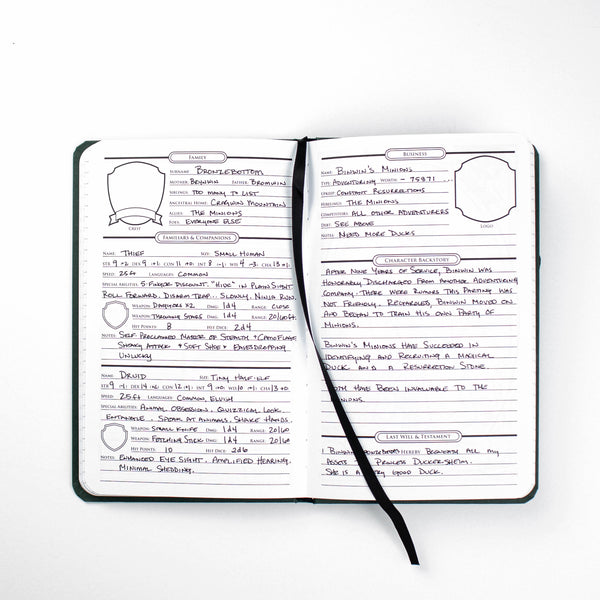 FAMILY
SURNAME BRONZEBOTTOM
MOTHER BRYNWIN FATHER BROMWIN
SIBLINGS TOO MANY TO LIST
ANCESTRAL HOME CRAGWIN MOUNTAIN
ALLIES THE MINIONS
FOES EVERYONE ELSE
CREST
FAMILIARS & COMPANIONS
NAME THIEF SIZE SMALL HUMAN
STR 9 -1 DEX 9 -1 CON 11 +0 INT 8 -1 WIS 4 -3 CHA 13 +1
SPEED 25ft LANGUAGES COMMON
SPECIAL ABILITIES 5-FINGER DISCOUNT. "HIDE" IN PLAIN SIGHT.
ROLL FORWARD. DISARM TRAP.. SLOWLY. NINJA RUN.
WEAPON DAGGERS X2 DMG 1d4 RANGE CLOSE
WEAPON THROWING STARS DMG 1d4 RANGE 20/60ft
HIT POINTS 8 HIT DICE 2d4
NOTES SELF PROCLAIMED MASTER OF STEALTH + CAMOFLAGE
SNEAKY ATTACK + SOFT SHOE + EAVESDROPPING
UNLUCKY
NAME DRUID SIZE TINY HALF-ELF
STR 9 -1 DEX 14 +2 CON 12 +1 INT 9 WIS 10 CHA 13 +1
SPEED 25ft LANGUAGES COMMON, ELVISH
SPECIAL ABILITIES ANIMAL OBSESSION. QUIZZICAL LOOK.
ENTANGLE. SPEAK AT ANIMALS. SHAKE HANDS.
WEAPON SMALL KNIFE DMG 1d4 RANGE 20/60
WEAPON FETCHING STICK DMG 1d4 RANGE 20/60
HIT POINTS 10 HIT DICE 2d6
NOTES ENHANCED EYE SIGHT. AMPLIFIED HEARING.
MINIMAL SHEDDING.
BUSINESS
NAME BINWIN'S MINIONS
TYPE ADVENTURING WORTH - 75971
CONSTANT RESURRECTIONS
HIRELINGS THE MINIONS
COMPETITORS ALL OTHER ADVENTURERS
DEBT SEE ABOVE
NOTES NEED MORE DUCKS
LOGO
CHARACTER BACKSTORY
AFTER NINE YEARS OF SERVICE, BINWIN WAS
HONORABLY DISCHARGED FROM ANOTHER ADVENTURING
COMPANY. THERE WERE RUMORS THIS PARTING WAS
NOT FRIENDLY. REGARDLESS, BINWIN MOVED ON
AND BEGAN TO TRAIN HIS OWN PARTY OF
MINIONS.
BINWIN'S MINIONS HAVE SUCCEEDED IN
IDENTIFYING AND RECRUITING A MAGICAL
DUCK AND A RESURRECTION STONE.
BOTH HAVE BEEN INVALUABLE TO THE
MINIONS.
LAST WILL & TESTAMENT
I BINWIN HEREBY BEQUEATH ALL MY
ASSETS PENLESS DUCKERSHEIM.
SHE IS A VERY GOOD DUCK.